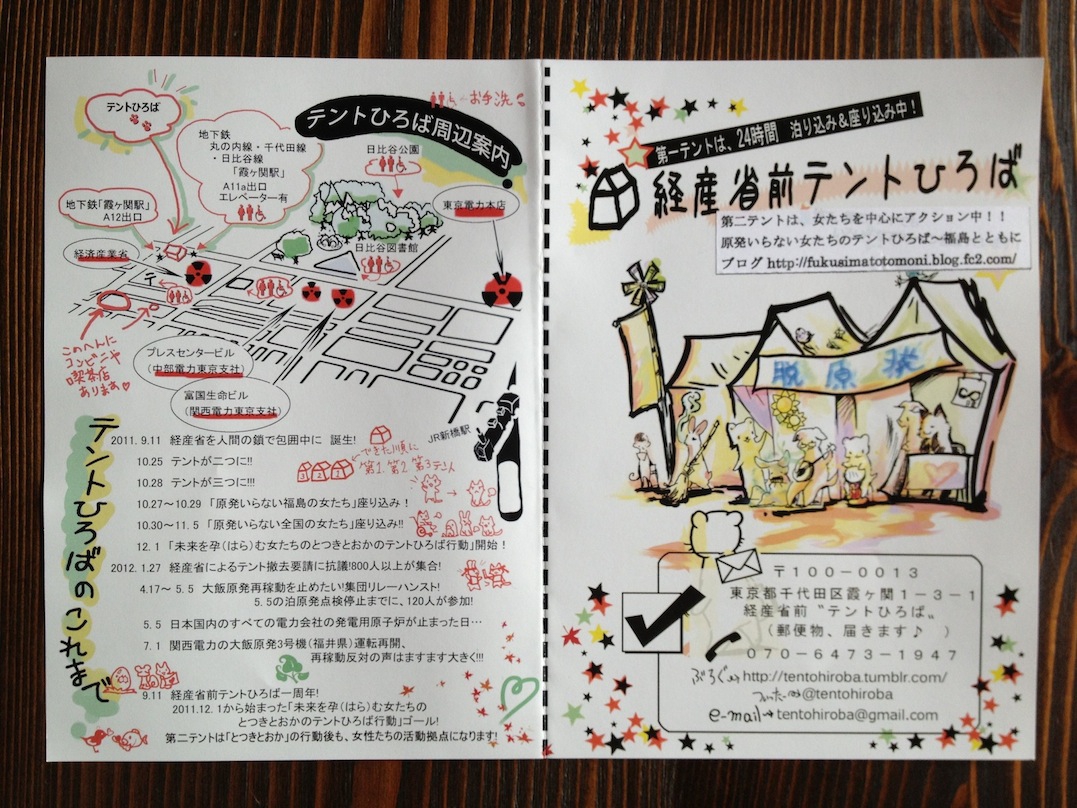 テントひろば周辺案内
お手洗
テントひろば
地下鉄
丸の内線・千代田線
・日比谷線
「霞ヶ関駅」
A11a出口
エレベーター有
地下鉄「霞ヶ関駅」
A12出口
経済産業省
日比谷公園
東京電力本店
日比谷図書館
〒
このへんに
コンビニや
喫茶店
あります♡
プレスセンタービル
(中部電力東京支社)
富国生命ビル
(関西電力東京支社)
JR新橋駅
テントひろばのこれまで
2011.9.11 経産省を人間の鎖で包囲中に 誕生!
10.25 テントが二つに!!
10.28 テントが三つに!!!
3 2 1
←できた順に
第1.第2.第3テント
10.27〜10.29 「原発いらない福島の女たち」座り込み!
10.30〜11.5 「原発いらない全国の女たち」座り込み!!
12.1 「未来を孕(はら)む女たちのとつきとおかのテントひろば行動」開始!
2012.1.27 経産省によるテント撤去要請に抗議!800人以上が集合!
4.17〜5.5 大飯原発再稼動を止めたい!集団リレーハンスト!
5.5の泊原発点検停止までに、120人が参加!
5.5 日本国内のすべての電力会社の発電用原子炉が止まった日…
7.1 関西電力の大飯原発3号機(福井県)運転再開、
再稼動反対の声はますます大きく!!!
9.11 経産省前テントひろば一周年!
2011.12.1から始まった「未来を孕(はら)む女たちの
とつきとおかのテントひろば行動」ゴール!
第二テントは「とつきとおか」の行動後も、女性たちの活動拠点になります!
第一テントは、24時間 泊り込み&座り込み中!
経産省前テントひろば
第二テントは、女たちを中心にアクション中!!
原発いらない女たちのテントひろば〜福島とともに
ブログ http://fukusimatotomoni.blog.fc2.com/
脱原発
〒100-0013
東京都千代田区霞ヶ関1-3-1
経産省前〝テントひろば〟
(郵便物、届きます♪ )
070-6473-1947
ぶろぐ→http://tentohiroba.tumblr.com/
ついったー→@tentohiroba
e-mail→tentohiroba@gmail.com